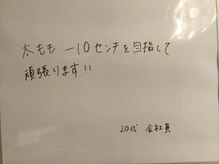 太もも -10センチを目指して
頑張ります!!
20代 会社員